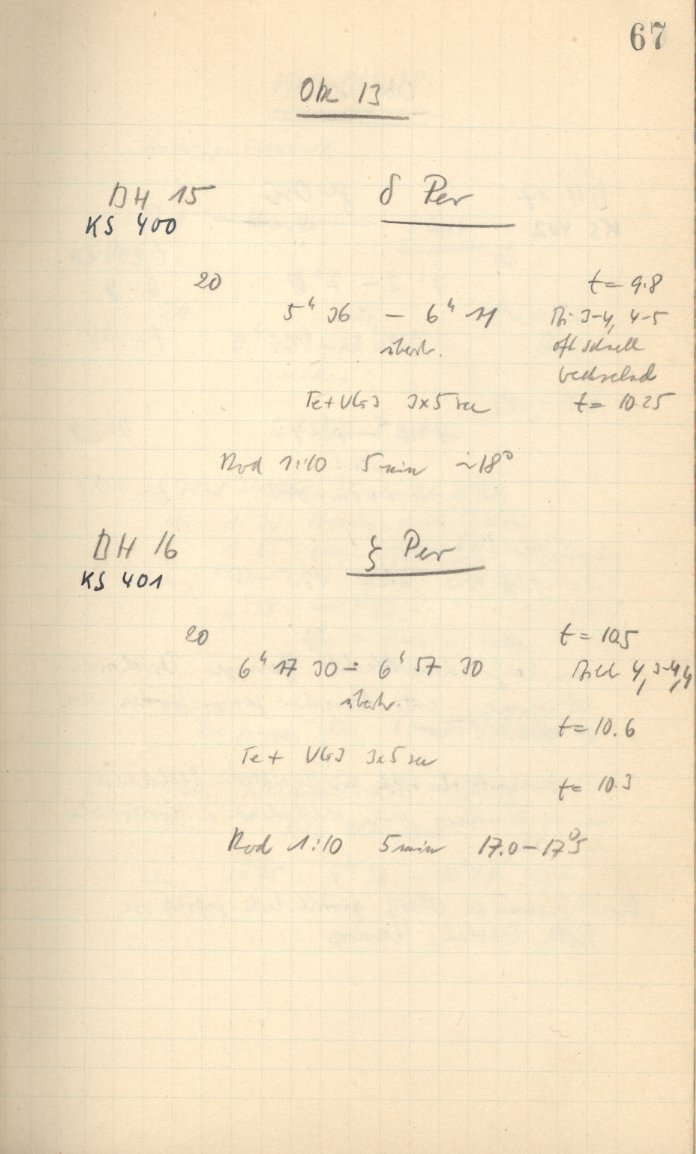 67
Okt 13
DH 15 δ Per
KS 400
20 t = 9.8
5h 36 — 6h 11 Bi 3-4, 4-5
oft schnell
wechselnd
Te + VG3 3x5 sec t = 10.25
Rod 1:10 5 min ~18°
DH 16 ξ Per
KS 401
20 t = 10.5
6h 17 30 — 6h 57 30 Bild 4, 3-4, 4
t = 10.6
Te + VG3 3x5 sec
t = 10.3
Rod 1:10 5 min 17.0 — 17°5